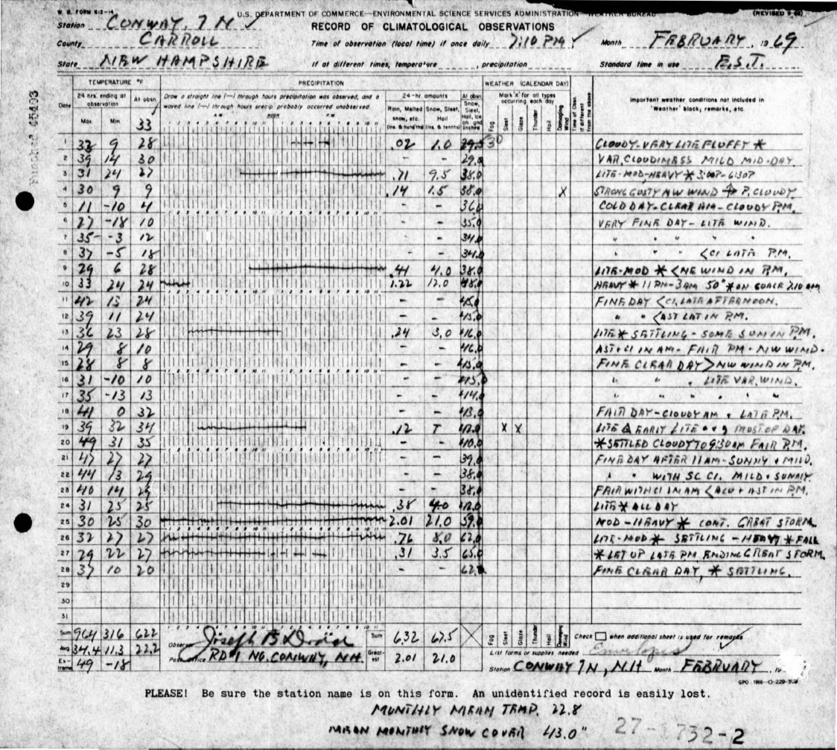 W. B. FORM 612-14 U.S. DEPARTMENT OF COMMERCE—ENVIRONMENTAL SCIENCE SERVICES ADMINISTRATION—WEATHER BUREAU
Station CONWAY, 7 N RECORD OF CLIMATOLOGICAL OBSERVATIONS
County CARROLL Time of observation (local time) if once daily 7:10 PM Month FEBRUARY, 1969
State NEW HAMPSHIRE If at different times, temperature , precipitation Standard time in use E.S.T.
TEMPERATURE °F PRECIPITATION WEATHER (CALENDAR DAY)
Date 24 hrs. ending at observation At obsn. Draw a straight line (—) through hours precipitation was observed, and a waved line through hours precip. probably occurred unobserved. 24-hr. amounts At obsn. Mark 'X' for all types occurring each day Important weather conditions not included in 'Weather' block; remarks, etc.
Max. Min. 33 A.M. NOON P.M. Rain, Melted snow, etc. Snow, Sleet, Hail Fog Sleet Glaze Thunder Hail Damaging Wind
1 33 9 28 .02 1.0 29.5 30 CLOUDY-VERY LITE FLUFFY *
2 39 14 30 – – 29.0 VAR. CLOUDINESS MILD MID-DAY
3 31 24 27 .71 9.5 38.0 LITE-MOD-HEAVY * 3:00P-6:30P
4 30 9 9 .14 1.5 38.0 X STRONG GUSTY NW WIND P. CLOUDY
5 11 -10 4 – – 36.0 COLD DAY-CLEAR AM-CLOUDY P.M.
6 27 -18 10 – – 35.0 VERY FINE DAY-LITE WIND.
7 35 -3 12 – – 34.0 " " " "
8 37 -5 18 – – 34.0 " " " < CI LATE P.M.
9 29 6 28 .41 4.0 38.0 LITE-MOD * < NE WIND IN P.M.
10 33 24 24 1.22 12.0 48.0 HEAVY * 11PM-3AM 50" * ON
11 42 13 24 – – 45.0 FINE DAY < CI, LATE AFTERNOON.
12 39 11 24 – – 45.0 " " < AST LAT IN P.M.
13 36 23 28 .24 3.0 46.0 LITE * SETTLING-SOME SUN IN P.M.
14 29 8 10 – – 46.0 AST+CI IN AM-FAIR PM-NW WIND.
15 28 8 8 – – 45.0 FINE CLEAR DAY > NW WIND IN P.M.
16 31 -10 10 – – 45.0 " " " LITE VAR. WIND.
17 35 -13 13 – – 44.0 " " "
18 41 0 32 – – 43.0 FAIR DAY-CLOUDY AM + LATE P.M.
19 39 32 34 .12 T 42.0 X X LITE EARLY LITE MOST OF DAY.
20 49 31 35 – – 40.0 * SETTLED CLOUDY TO 9:30AM FAIR P.M.
21 47 27 27 – – 39.0 FINE DAY AFTER 11AM-SUNNY + MILD.
22 44 13 29 – – 38.0 " " WITH SC CI. MILD + SUNNY.
23 40 14 29 – – 38.0 FAIR WITH CI IN AM < ACU + AST IN P.M.
24 31 25 25 .38 4.0 42.0 LITE * ALL DAY
25 30 25 30 2.01 21.0 59.0 MOD-HEAVY * CONT. GREAT STORM.
26 32 27 27 .76 8.0 62.0 LITE-MOD * SETTLING-HEAVY * FALL
27 29 22 27 .31 3.5 65.0 * LET UP LATE PM ENDING GREAT STORM.
28 37 10 20 – – 62.0 FINE CLEAR DAY, * SETTLING.
29
30
31
Sum 964 316 622 Observer Sum 6.32 67.5 Fog Sleet Glaze Thunder Hail Check when additional sheet is used for remarks
Avg 34.4 11.3 22.2 Post office RD 1 NO. CONWAY, N.H. Greatest 2.01 21.0 List forms or supplies needed Envelopes
Extreme 49 -18 Station CONWAY 7N, N.H Month FEBRUARY, 19
PLEASE! Be sure the station name is on this form. An unidentified record is easily lost.
MONTHLY MEAN TEMP. 22.8
MEAN MONTHLY SNOW COVER 43.0"
27-1732-2